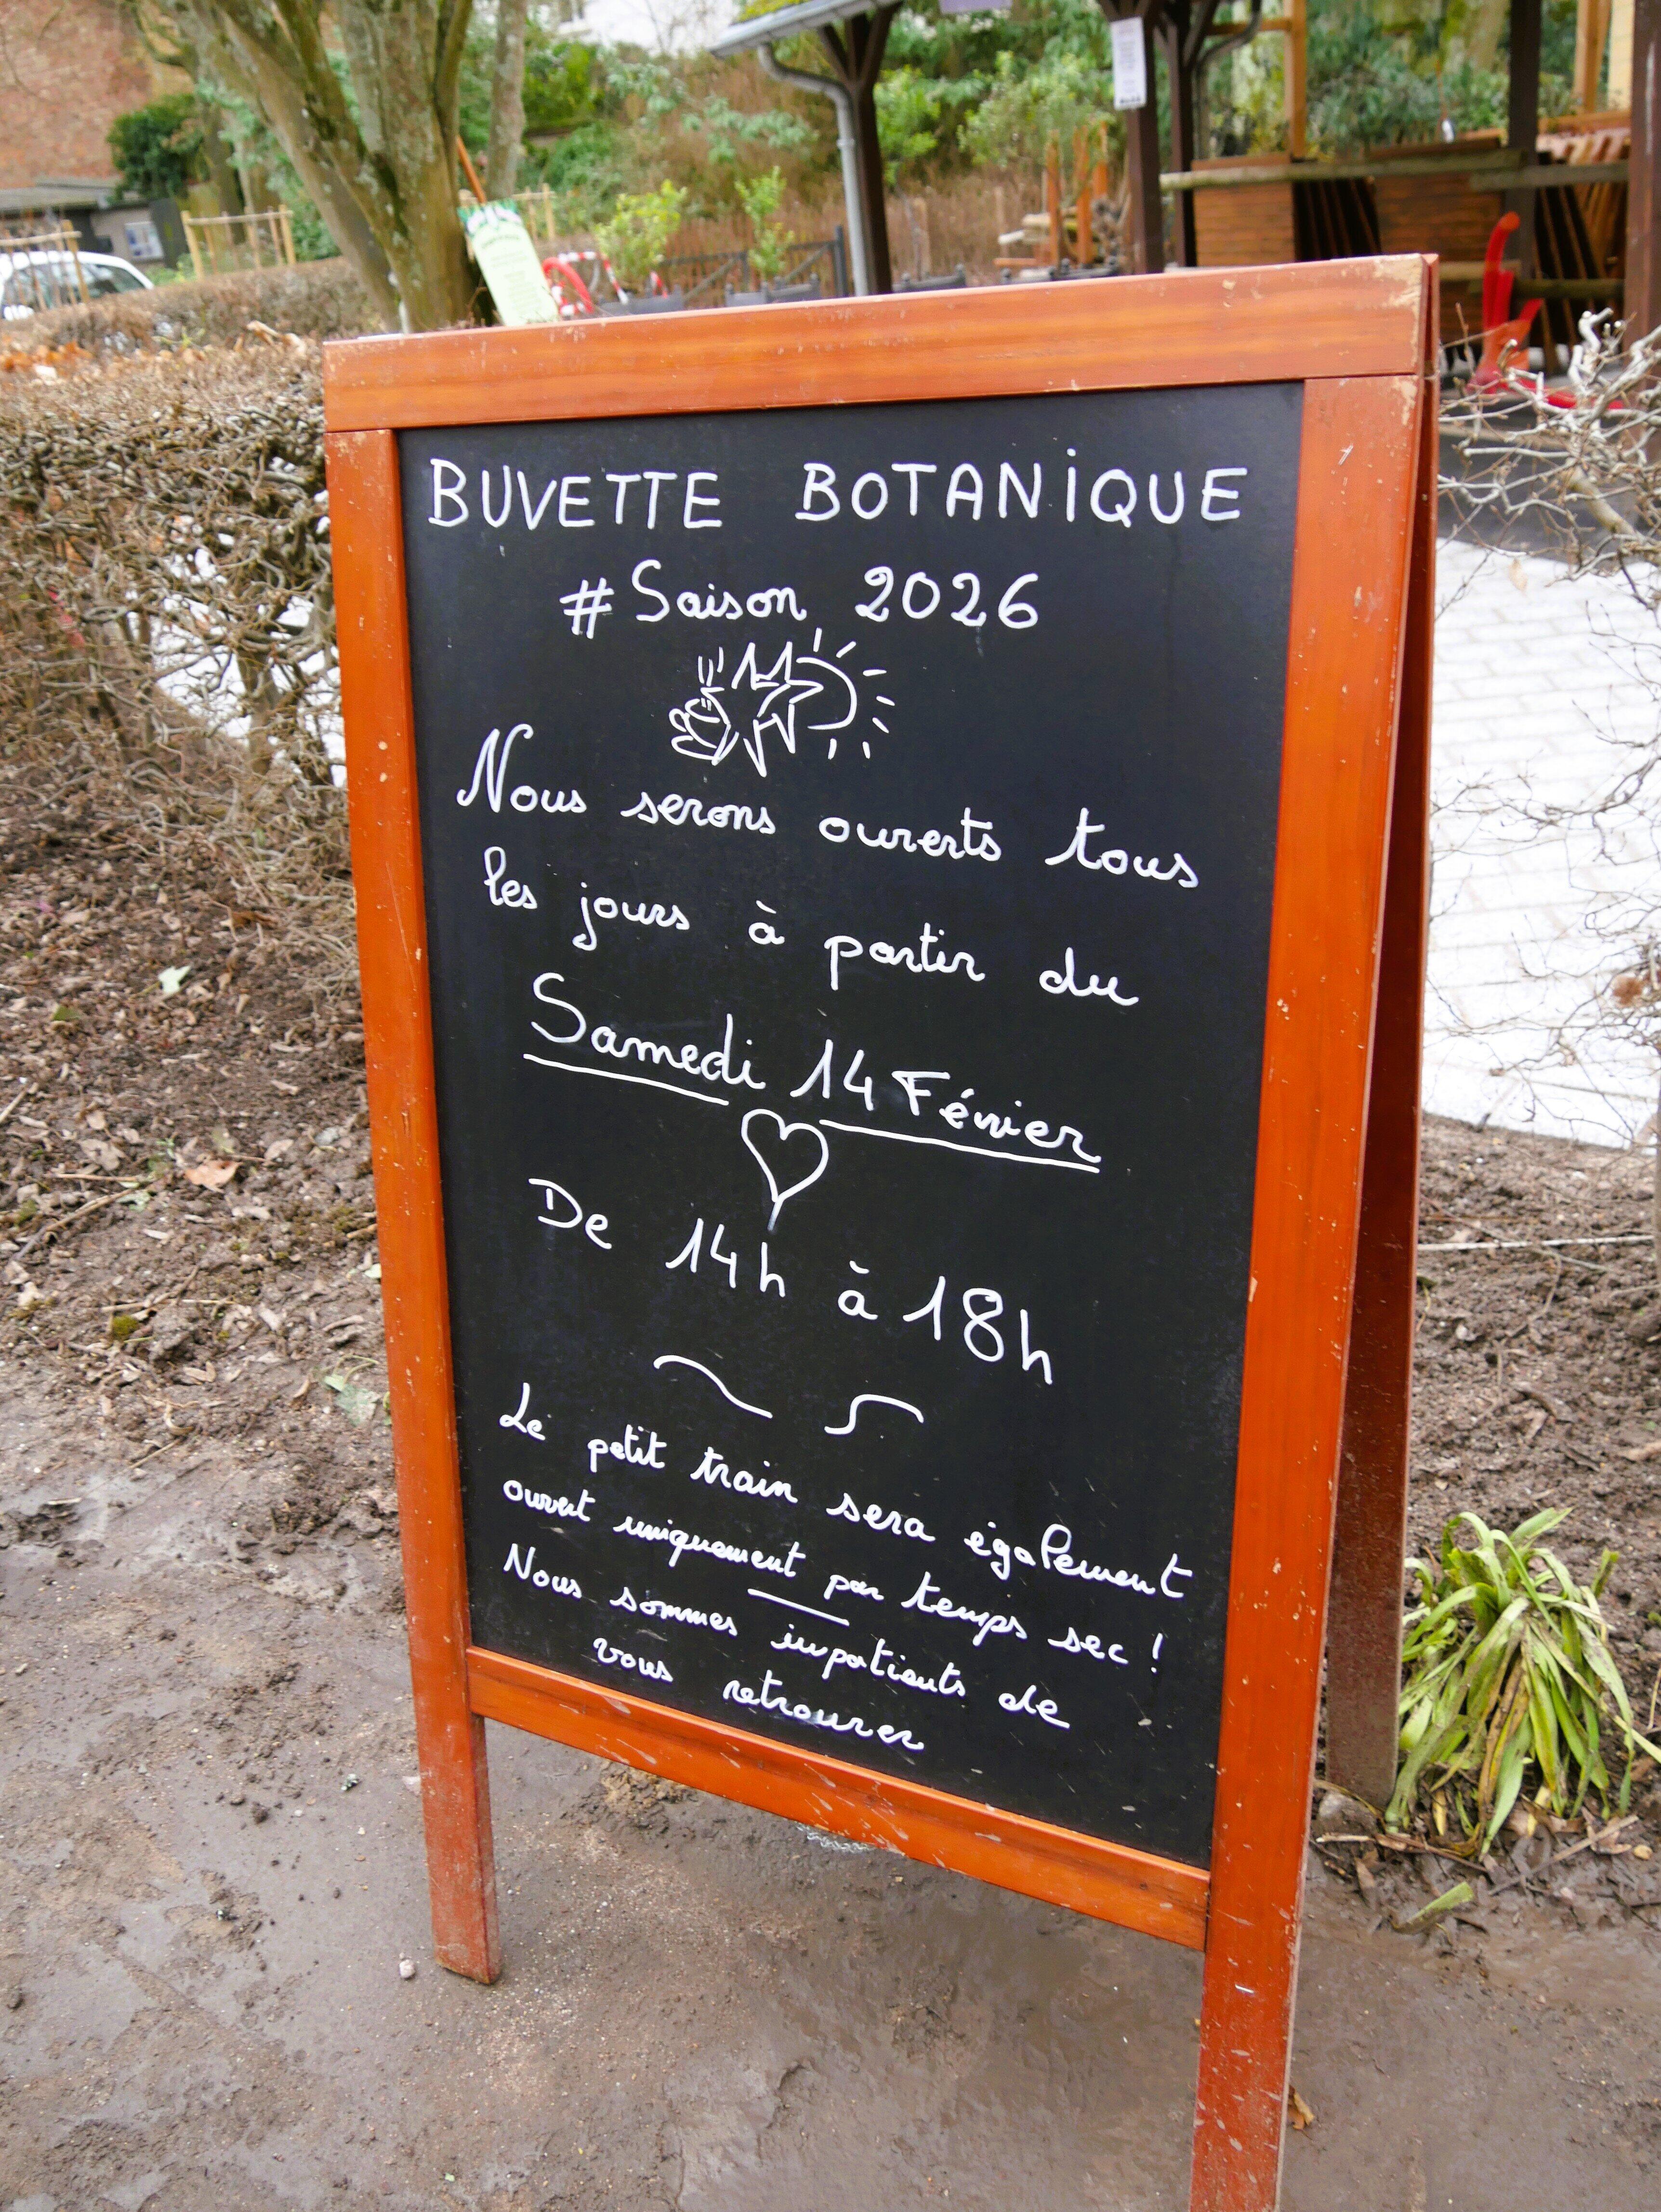 BUVETTE BOTANIQUE
#Saison 2026
Nous serons ouverts tous
les jours à partir du
Samedi 14 Février
De 14h à 18h
Le petit train sera également
ouvert uniquement par temps sec !
Nous sommes impatients de
vous retrouver